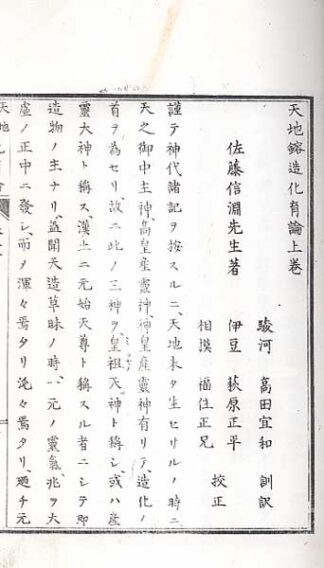 天地鎔造化育論上巻
佐藤信淵先生著
駿河 高田宜和 訓訳
伊豆 萩原正平
相模 福住正兄 校正
謹テ神代諸記ヲ按スルニ、天地未タ生セサルノ時ニ
天之御中主神、高皇産靈神、神皇産靈神有リテ、造化ノ
首ヲ為セリ故ニ此ノ三神ヲ、皇祖天神ト稱シ、或ハ産
靈大神ト稱ス、漢土ニ元始天尊ト稱スル者ニシテ即
造物ノ主ナリ、蓋聞天造草昧ノ時、一元ノ靈氣、兆ヲ大
虛ノ正中ニ發シ、而ヲ渾々焉タリ沌々焉タリ、廼チ元